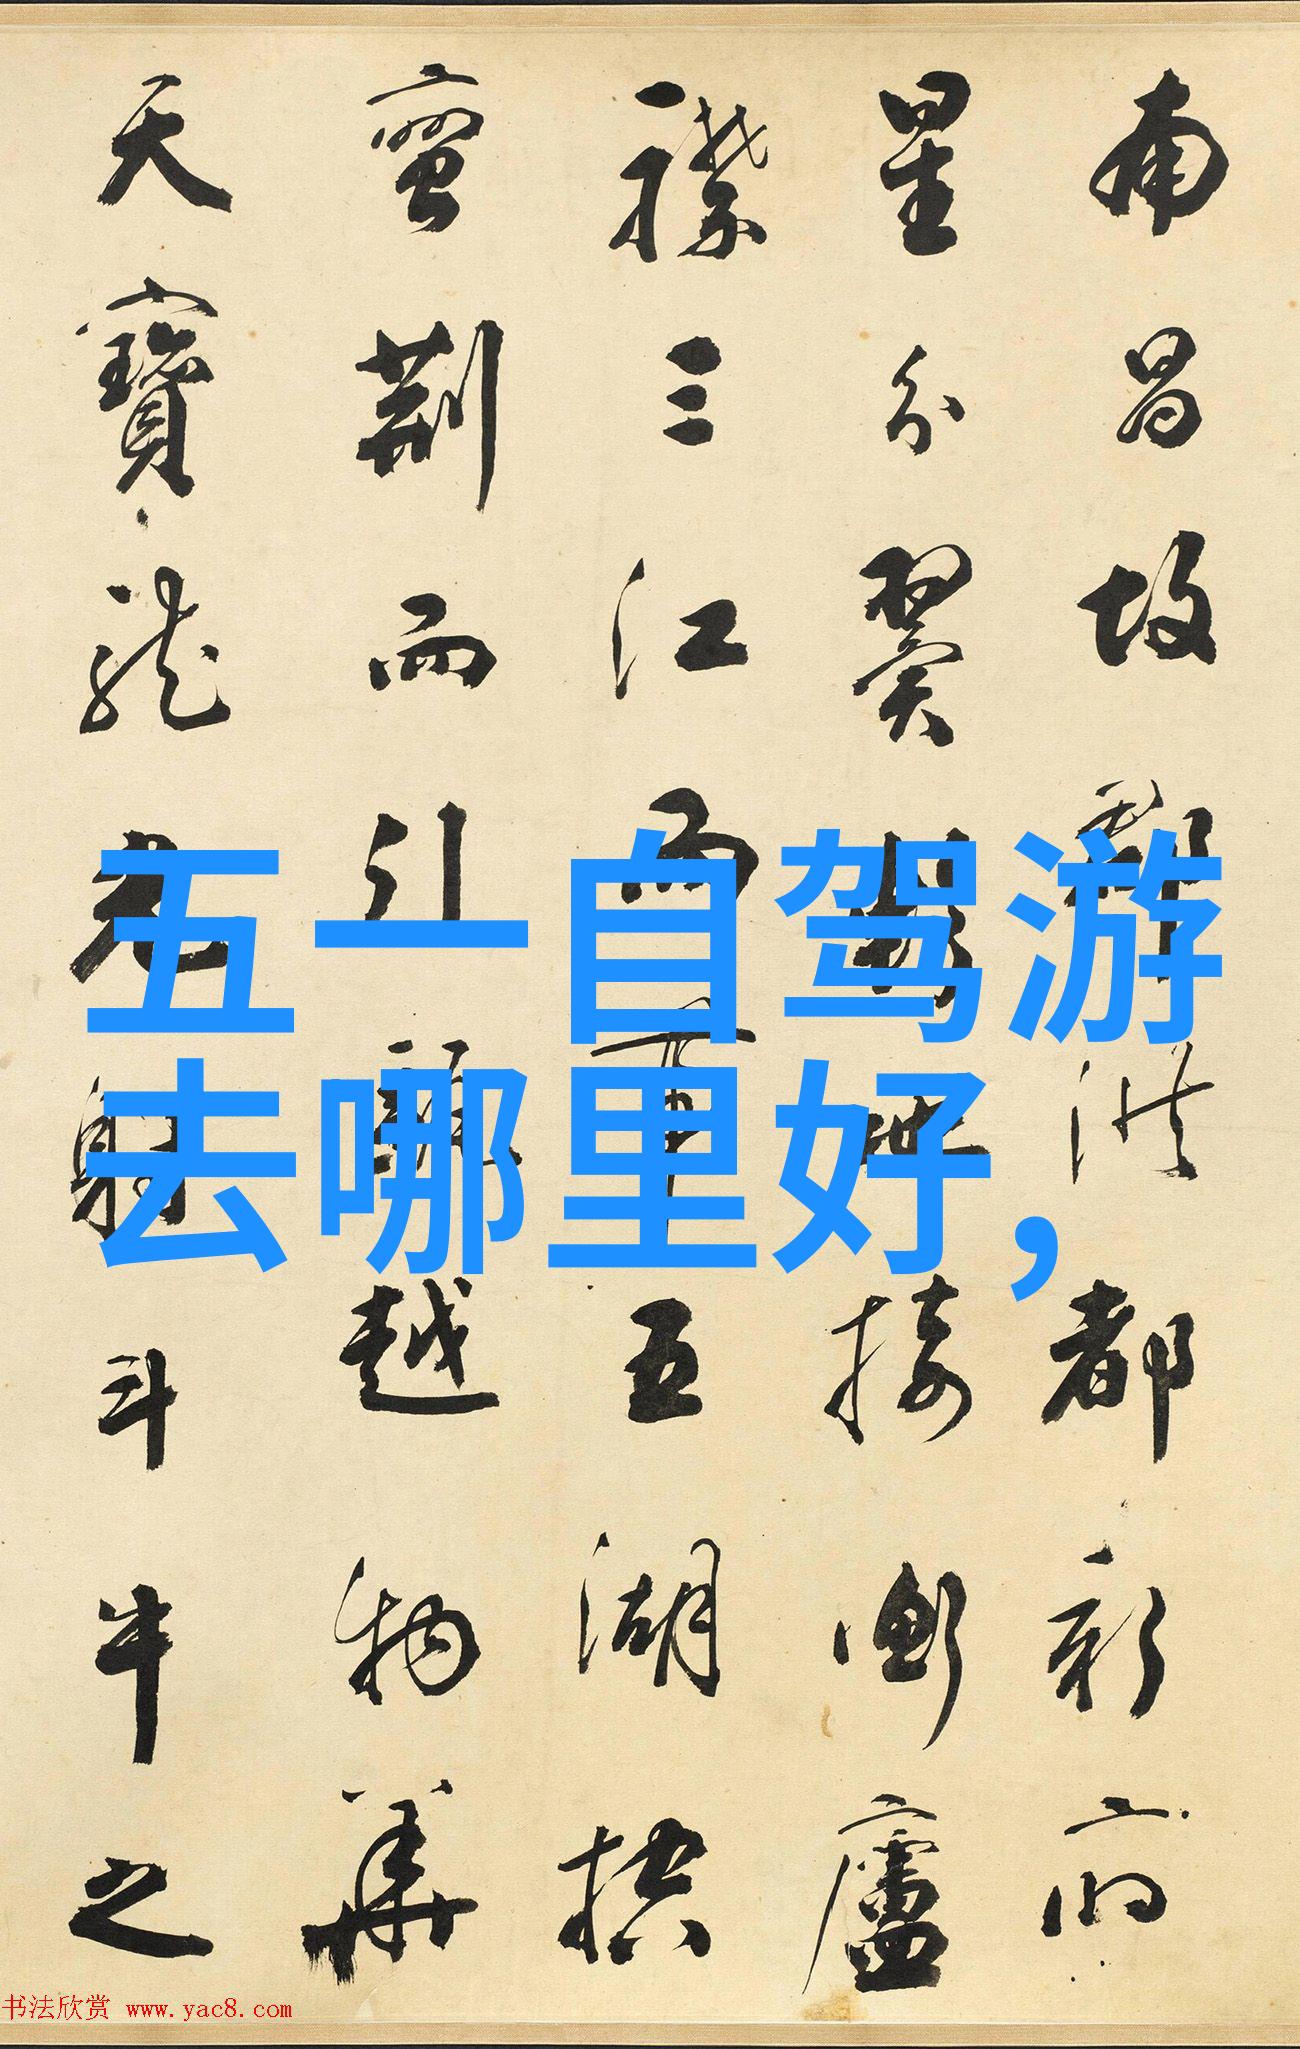 南昌故郡洪都新府
星分翼軫地接衡廬
襟三江而帶五湖控
蠻荊而引甌越物華
天寶龍光射斗牛之
五一自驾游
去哪里好，
书法欣赏 www.yac8.com